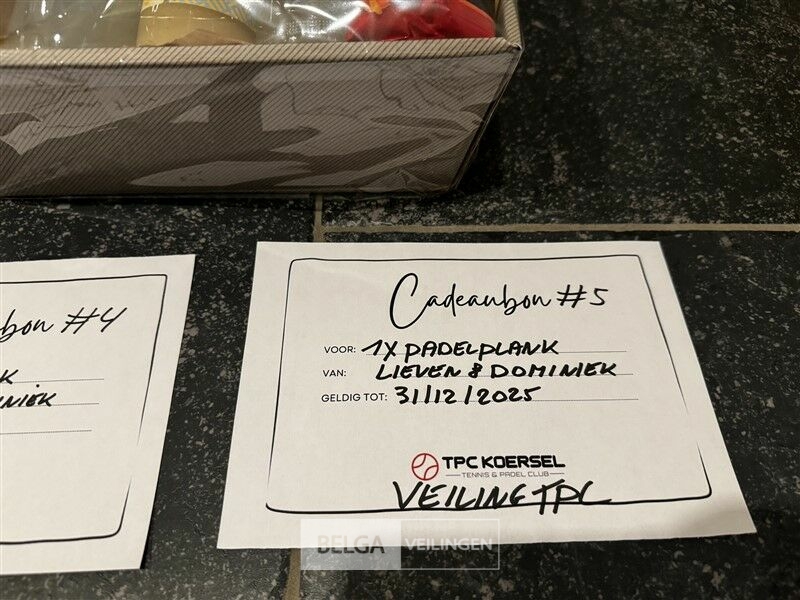 bon #4
K
INIEK
Cadeaubon #5
VOOR: 1X PADELPLANK
VAN: LIEVEN & DOMINIEK
GELDIG TOT: 31/12/2025
TPC KOERSEL
TENNIS & PADEL CLUB
VEILING TPC
BELGA VEILINGEN